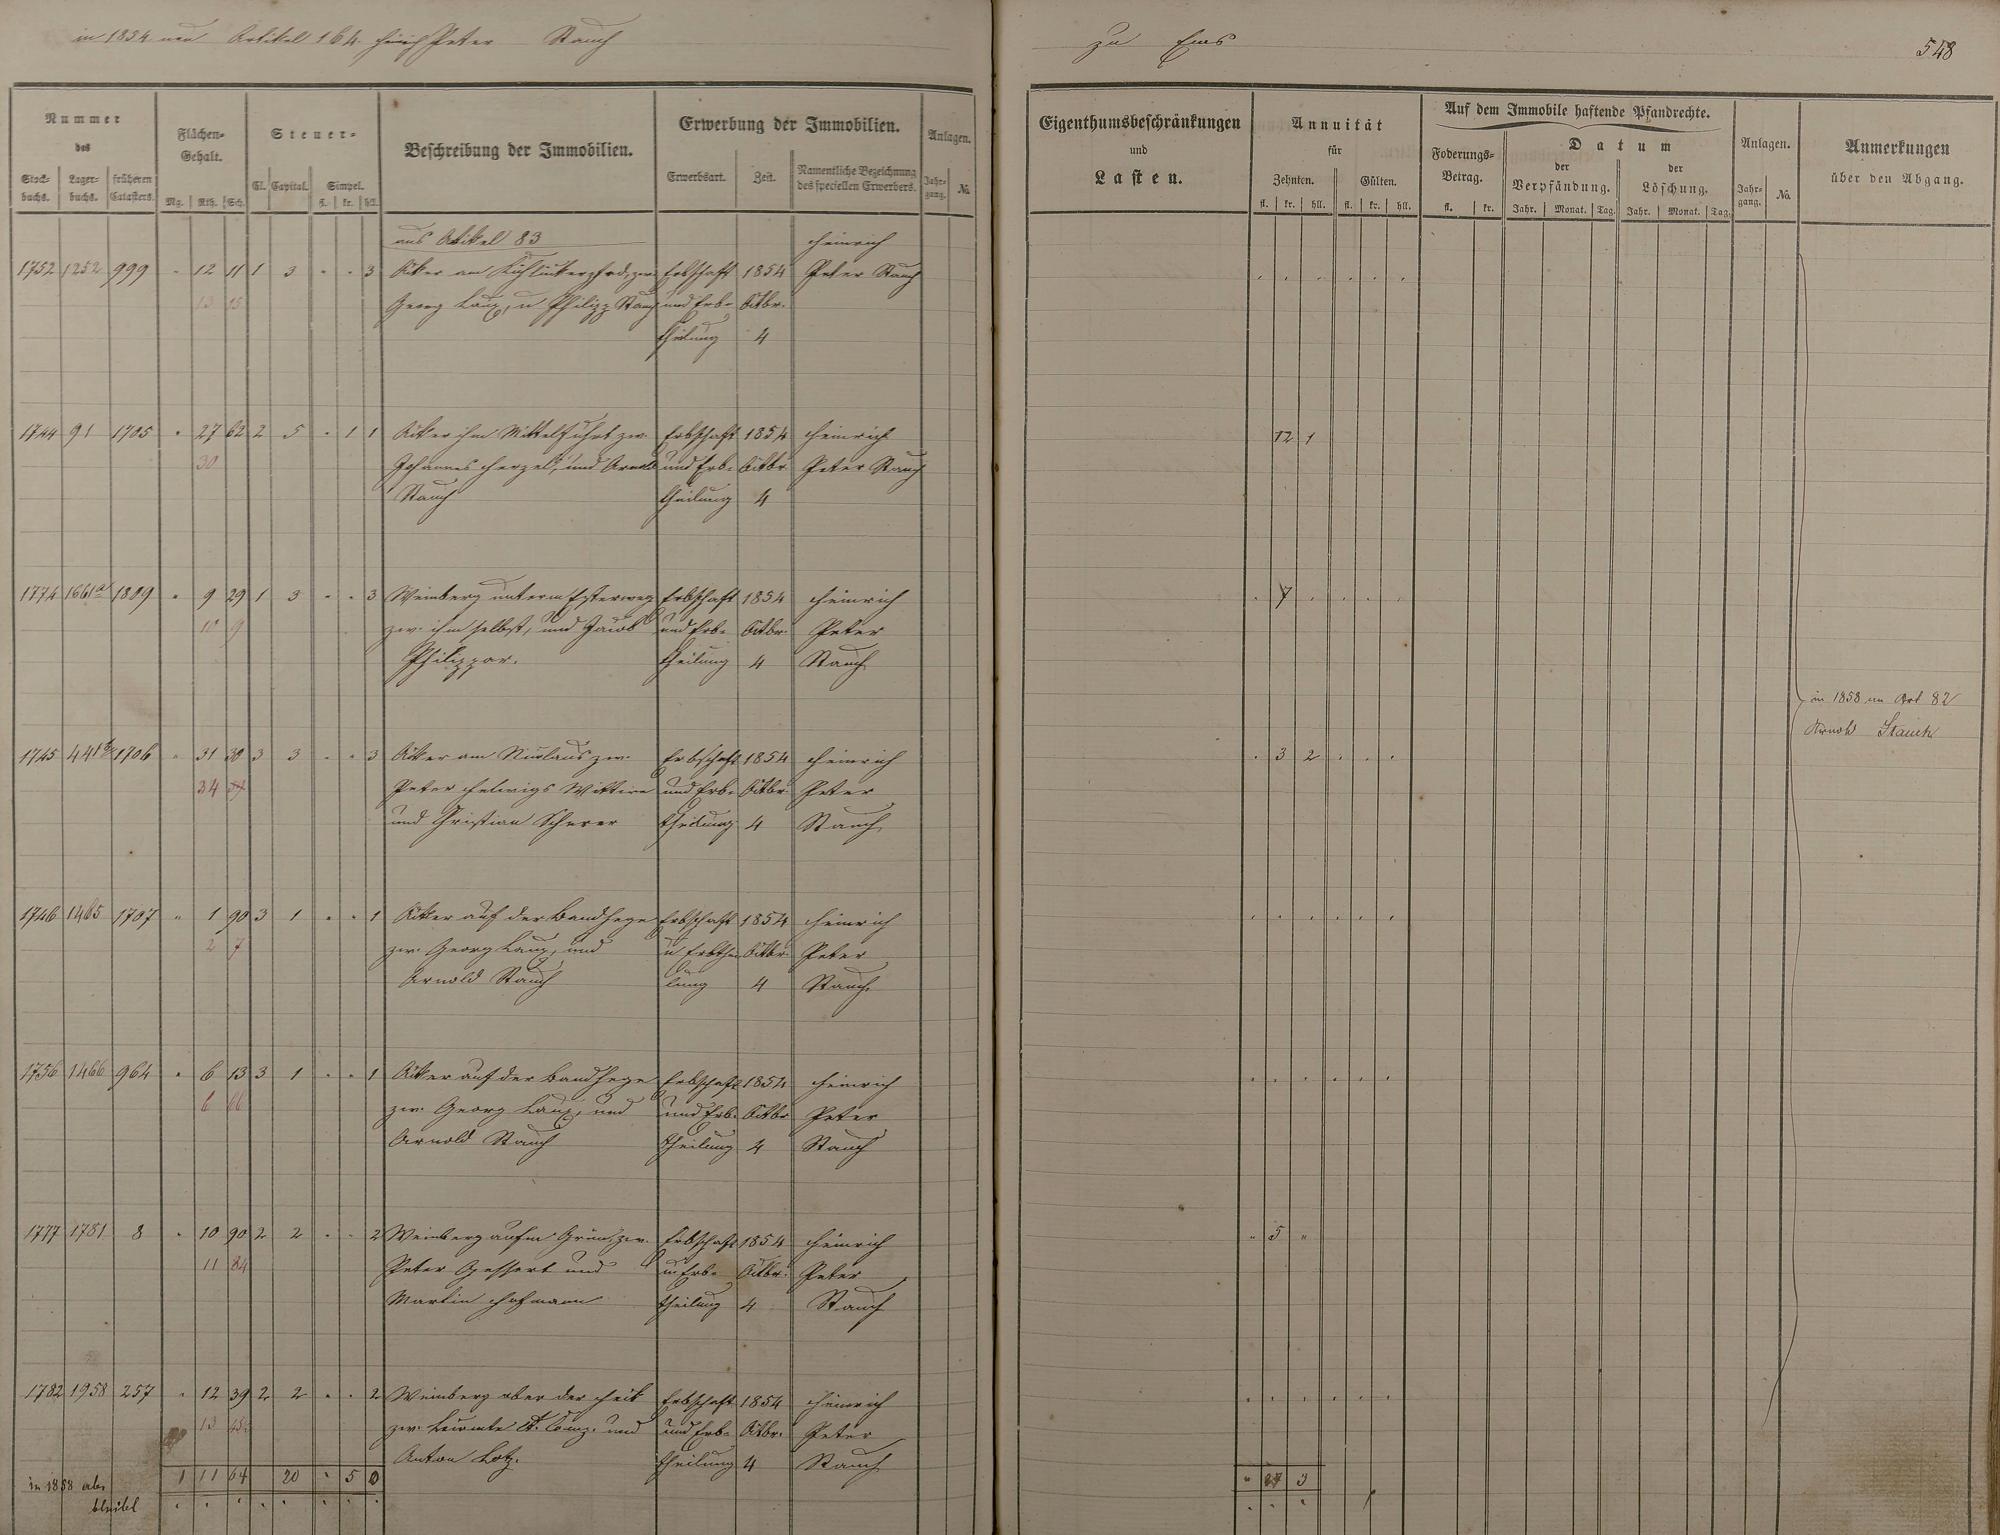 in 1854 neu Artikel 164. Heinrich Peter Stauch
zu Ems
548
Nummer
des
Stock-
buchs.
Lager-
buchs.
früheren
Catasters.
Flächen-
Gehalt.
Mg. Rth. Sch.
Steuer-
Cl. Capital. Simpel.
fl. kr. hll.
Beschreibung der Immobilien.
Erwerbung der Immobilien.
Erwerbsart. Zeit. Namentliche Bezeichnung
des speciellen Erwerbers.
Anlagen.
Jahr-
gang. No.
Eigenthumsbeschränkungen
und
Lasten.
Annuität
für
Zehnten. Gülten.
fl. kr. hll. fl. kr. hll.
Auf dem Immobile haftende Pfandrechte.
Foderungs-
Betrag.
fl. kr.
Datum
der
Verpfändung.
der
Löschung.
Jahr. Monat. Tag. Jahr. Monat. Tag.
Anlagen.
Jahr-
gang. No.
Anmerkungen
über den Abgang.
aus Artikel 83 Heinrich
1752 1252 999 " 12 11 1 3 " " 3 Acker am zw. Erbschaft 1854 Peter Stauch
13 15 Georg Laux, u Philipp Stauch und Erb- Octbr.
theilung 4
1744 91 1705 " 27 62 2 5 " 1 1 Acker im Mittelfuhrt zw. Erbschaft 1854 Heinrich 12 1
30 Johannes Herzel, und Arnold und Erb- Octbr. Peter Stauch
Stauch theilung 4
1774 1661a 1809 " 9 29 1 3 " " 3 Weinberg unterm zw. Erbschaft 1854 Heinrich " 7
10 9 zw. ihm selbst, und Jacob und Erb- Octbr. Peter
Philippar. theilung 4 Stauch
in 1858 an Art 82
Arnold Stauch
1745 441 1706 " 31 30 3 3 " " 3 Acker am Niclaus zw. Erbschaft 1854 Heinrich " 3 2
34 Peter Helwigs Wittwe und Erb- Octbr. Peter
und Christian Scherer theilung 4 Stauch
1746 1465 1707 " 1 90 3 1 " " 1 Acker auf der Bandhege Erbschaft 1854 Heinrich
2 7 zw. Georg Laux, und u Erbthei- Octbr. Peter
Arnold Stauch lung 4 Stauch
1756 1466 964 " 6 13 3 1 " " 1 Acker auf der Bandhege Erbschaft 1854 Heinrich
6 66 zw. Georg Laux, und und Erb- Octbr Peter
Arnold Stauch theilung 4 Stauch
1777 1781 8 " 10 90 2 2 " " 2 Weinberg aufm Grün, zw. Erbschaft 1854 Heinrich " 5 "
11 84 Peter und u Erb- Octbr. Peter
Martin Hofmann theilung 4 Stauch
1782 1958 257 " 12 39 2 2 " " 2 Weinberg ober der Heit Erbschaft 1854 Heinrich
13 zw. et Comp. und und Erb- Octbr. Peter
Anton Lotz. theilung 4 Stauch
in 1858 abs 1 11 64 20 " 5 0 " 27 3
bleibt